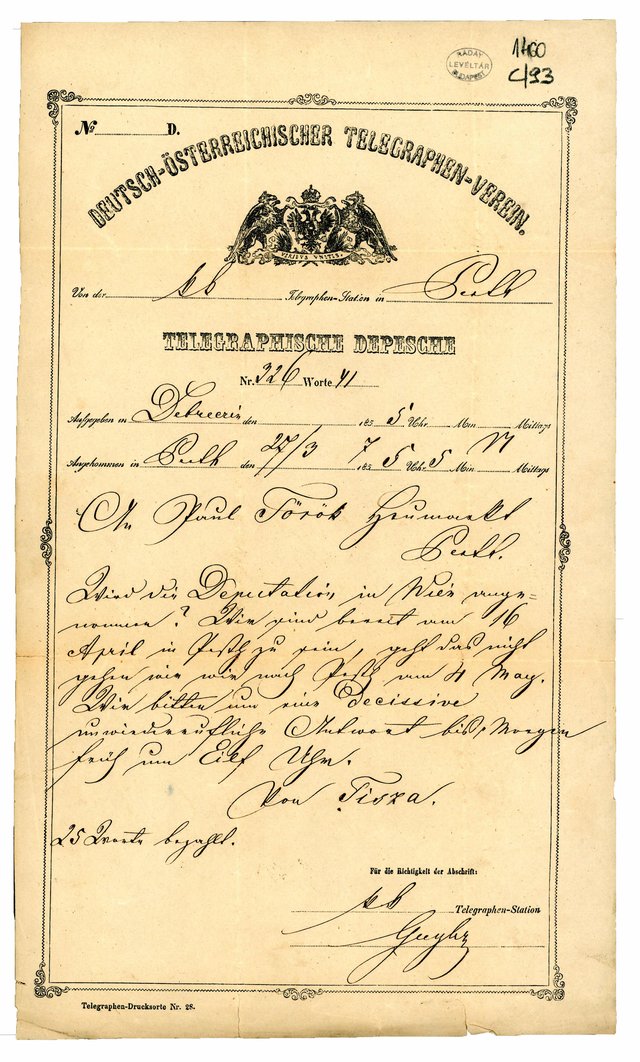 RÁDAY
LEVÉLTÁR
BUDAPEST
1460
C/93
№ D.
DEUTSCH-ÖSTERREICHISCHER TELEGRAPHEN-VEREIN.
VIRIBUS UNITIS.
Von der kk Telegraphen-Station in Pesth
TELEGRAPHISCHE DEPESCHE
Nr. 326 Worte 41
Aufgegeben in Debreczin den 185 5 Uhr Min Mittags
Angekommen in Pesth den 27/3 7 185 5 Uhr 5 Min N Mittags
An Paul Török Heumarkt
Pesth.
Wird die Deputation in Wien ange-
nommen? Wir sind bereit am 16
April in Pesth zu sein, geht das nicht
gehen wir nach Pesth am 4 May.
Wir bitten um eine Decissive
unwiederrufliche Antwort bis Morgen
früh um Eilf Uhr.
Von Tisza.
25 Worte bezahlt.
Für die Richtigkeit der Abschrift:
kk Telegraphen-Station
Telegraphen-Drucksorte Nr. 28.